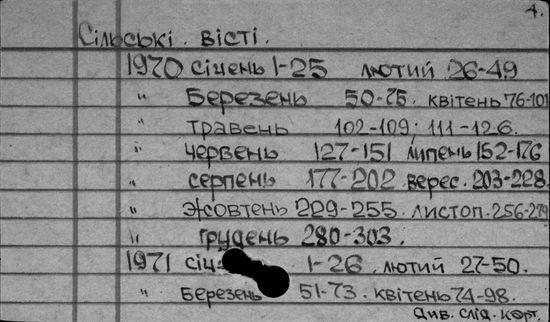 4.
Сільські. вісті.
1970 січень 1-25 лютий 26-49
" Березень 50-75. квітень 76-101
" травень 102-109; 111-126.
" червень 127-151 липень 152-176
" серпень 177-202. верес. 203-228
" жовтень 229-255. листоп. 256-279
" грудень 280-303.
1971 січ 1-26. лютий 27-50.
" Березень 51-73. квітень 74-98.
Див. слід. карт.